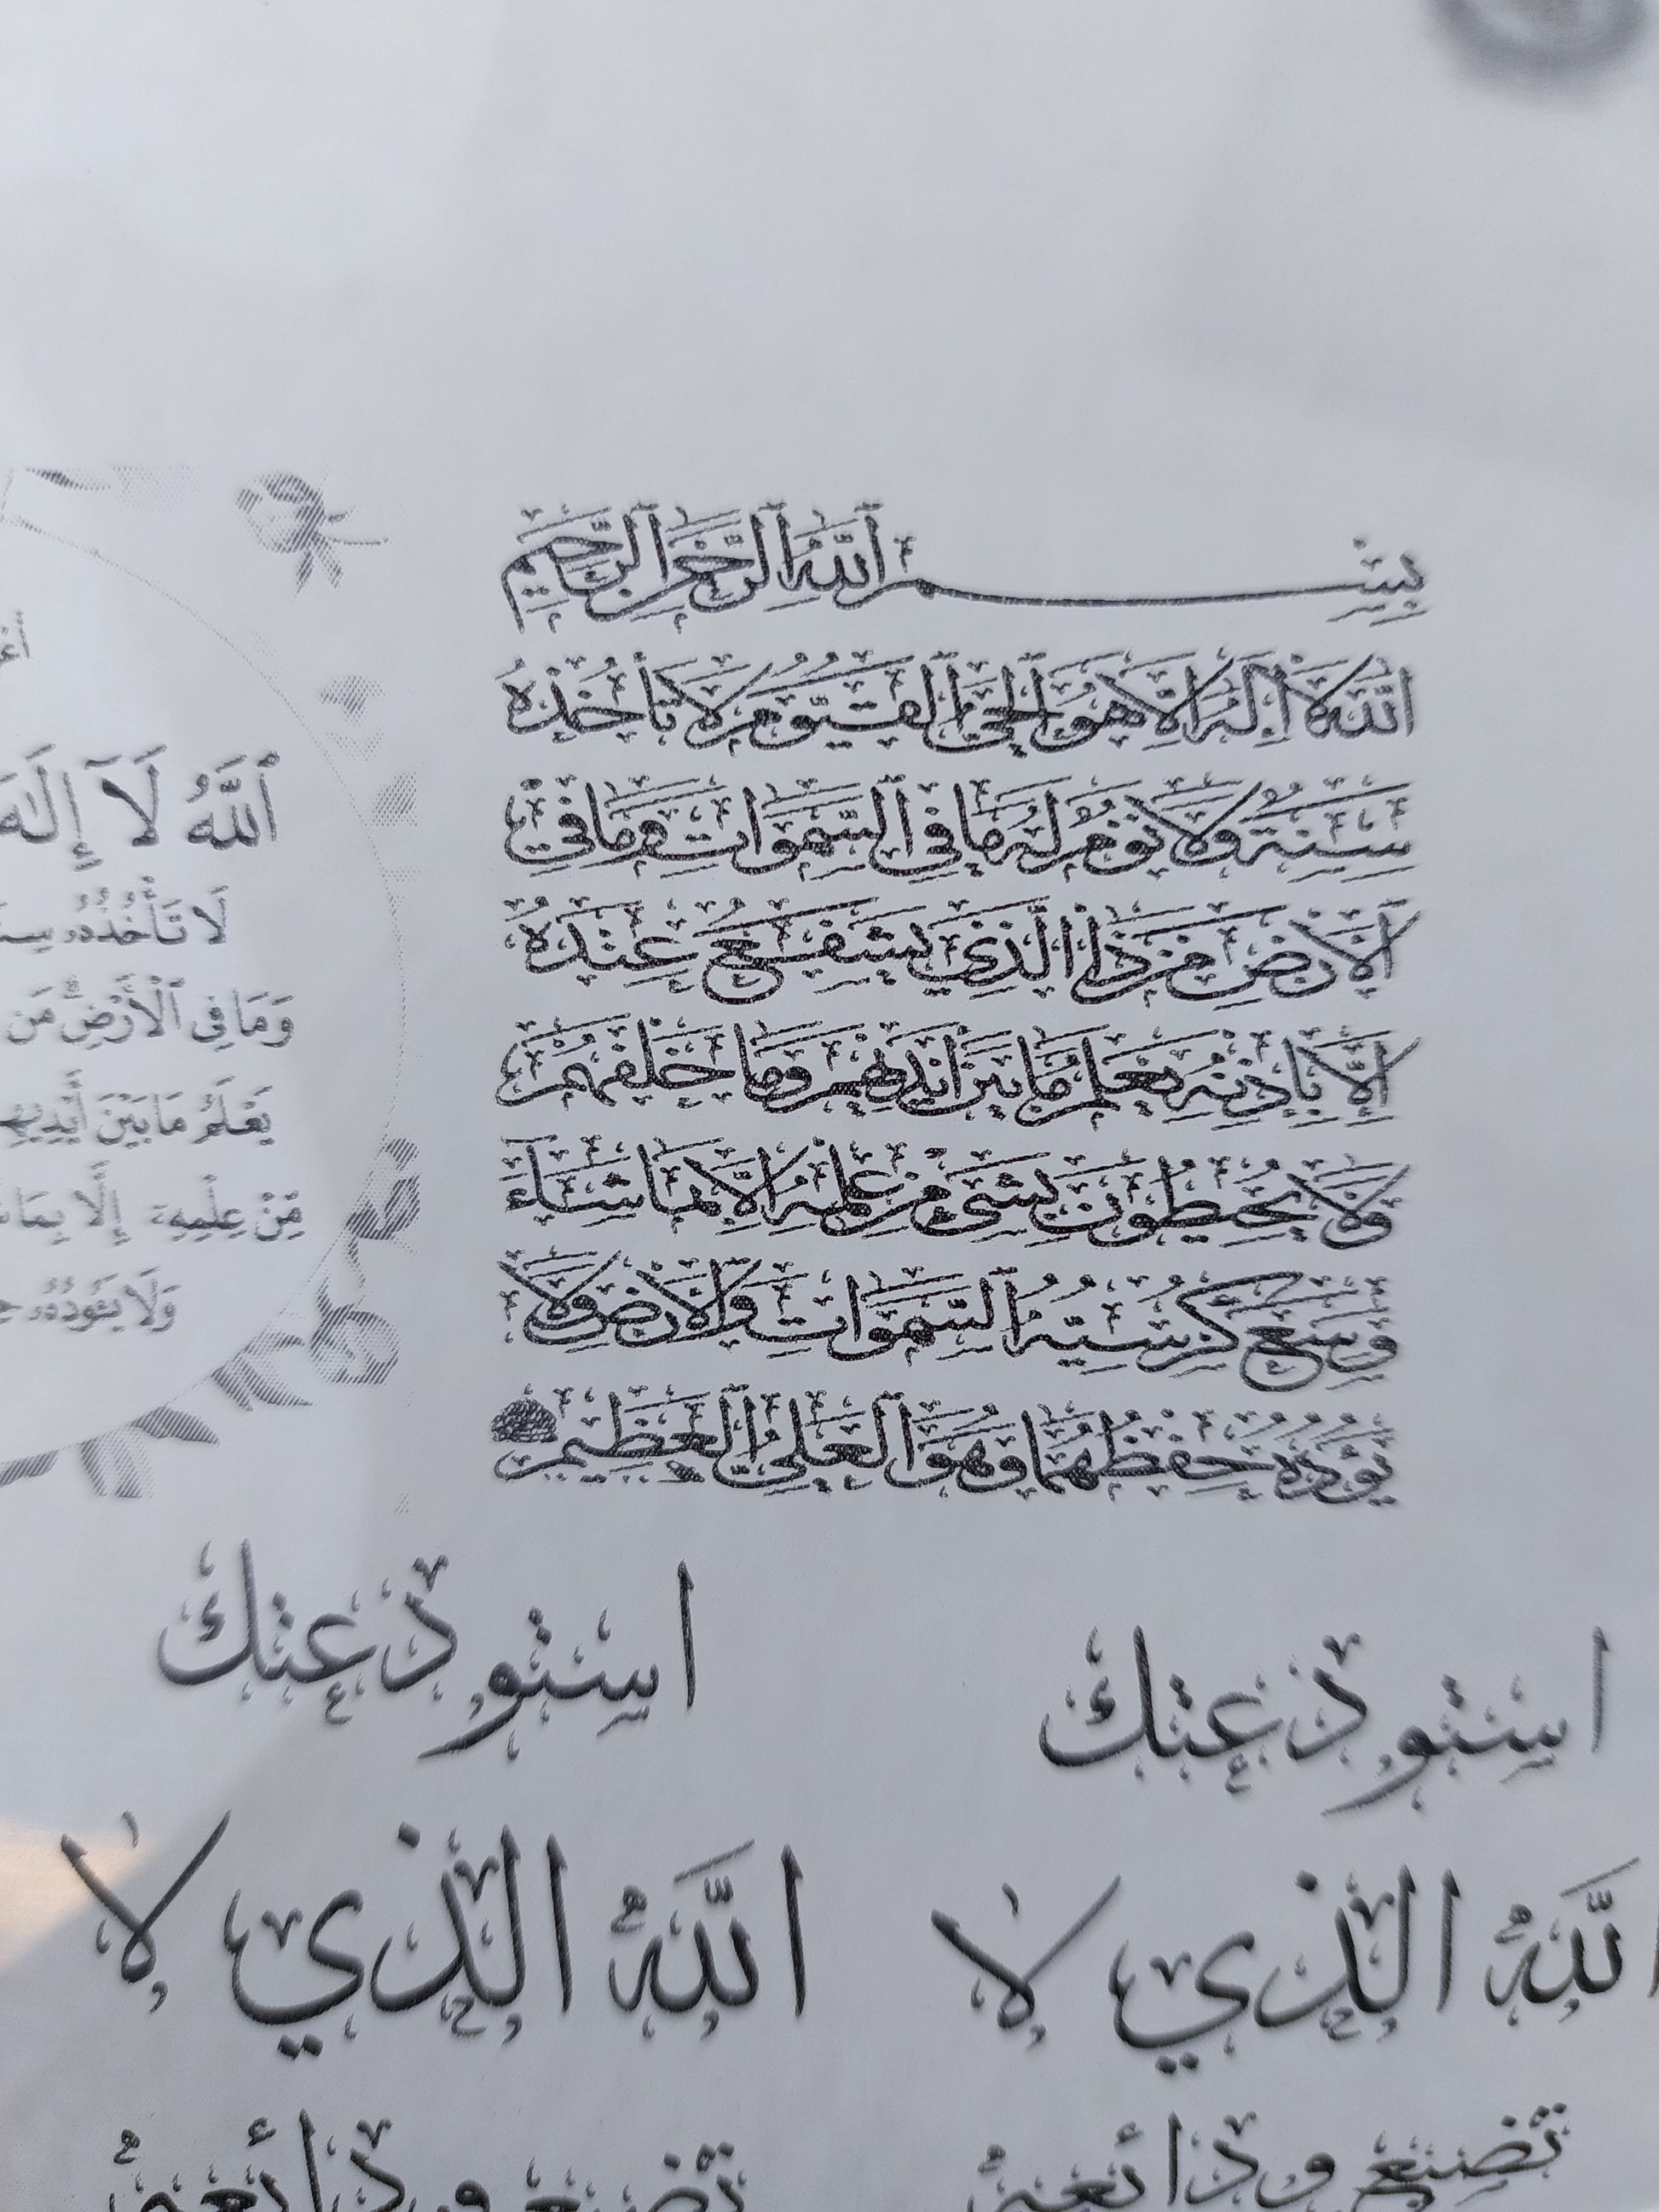 بِسْمِ ٱللَّهِ ٱلرَّحْمَٰنِ ٱلرَّحِيمِ
اللَّهُ لَا إِلَٰهَ إِلَّا هُوَ الْحَيُّ الْقَيُّومُ لَا تَأْخُذُهُ
سِنَةٌ وَلَا نَوْمٌ لَهُ مَا فِي السَّمَوَاتِ وَمَا فِي
الْأَرْضِ مَنْ ذَا الَّذِي يَشْفَعُ عِنْدَهُ
إِلَّا بِإِذْنِهِ يَعْلَمُ مَا بَيْنَ أَيْدِيهِمْ وَمَا خَلْفَهُمْ
وَلَا يُحِيطُونَ بِشَيْءٍ مِنْ عِلْمِهِ إِلَّا بِمَا شَاءَ
وَسِعَ كُرْسِيُّهُ السَّمَوَاتِ وَالْأَرْضَ وَلَا
يَؤُدُهُ حِفْظُهُمَا وَهُوَ الْعَلِيُّ الْعَظِيمُ
ٱللَّهُ لَآ إِلَٰهَ
لَا تَأْخُذُهُۥ
وَمَا فِى ٱلْأَرْضِ مَن
يَعْلَمُ مَا بَيْنَ
مِّنْ عِلْمِهِۦٓ إِلَّا
وَلَا يَـُٔودُهُۥ
استودعتك
اللهُ الذي لا
تضيع ودائعهُ
استودعتك
اللهُ الذي لا
تضيع ودائعهُ